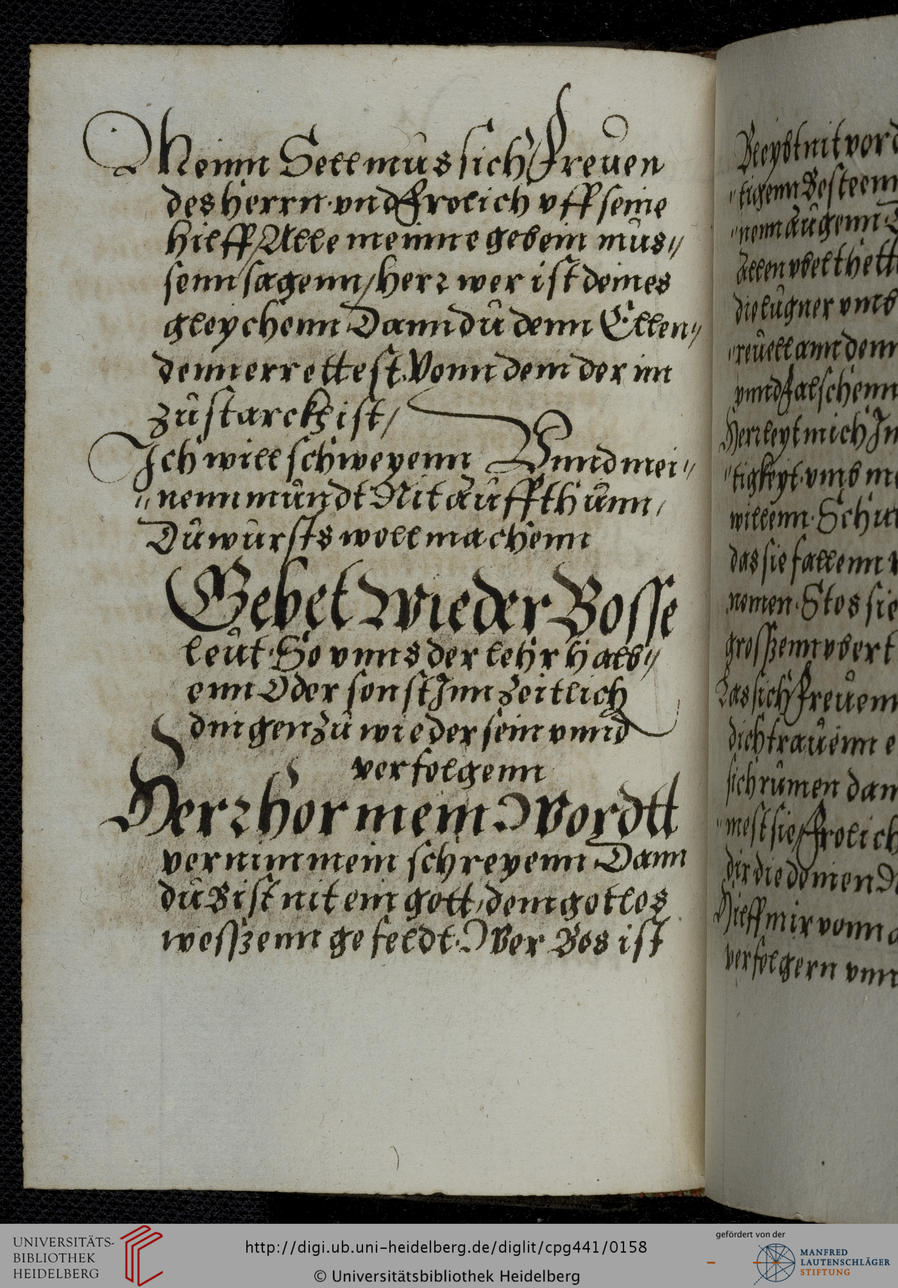 Meinn Sell mus sich Freuen
des herrn vnd Frolich vff seine
hilff / Alle meinne gebein mus„
senn sagenn / herr wer ist deines
gleychenn Dann du denn Ellen„
denn errettest Vonn dem der im
zu starck ist /
Ich will schweyenn Vnnd mei„
„nenn mundt Nit auffthunn /
Du wursts woll machenn
Gebet Wieder Bosse
leut So vnns der lehr halb„
enn Oder sonst Jnn Zeitlich
dingen zu wieder sein vnnd
verfolgenn
Herr hor mein Wordtt
vernim mein schreyenn Dann
du Bist nit ein gott / dem gotlos
wesszenn gefeldt Wer Bos ist
Bleybt nit vor
„tigenn Besteenn
„nenn augenn
Allen vbelthett
die lugner vmb
„reuell ann denn
vnnd falschenn
Herr leyt mich Jn
„tigkeyt vmb me
willenn Schu
das sie fallenn
nemen Stos sie
grosszenn vbert
Las sich Freuenn
dich trauenn e
sich rumen dan
„mest sie Frolich
dir die deinen
Hilff mir vonn
verfolgern vnn
UNIVERSITÄTS-
BIBLIOTHEK
HEIDELBERG
http://digi.ub.uni-heidelberg.de/diglit/cpg441/0158
© Universitätsbibliothek Heidelberg
gefördert von der
MANFRED
LAUTENSCHLÄGER
STIFTUNG